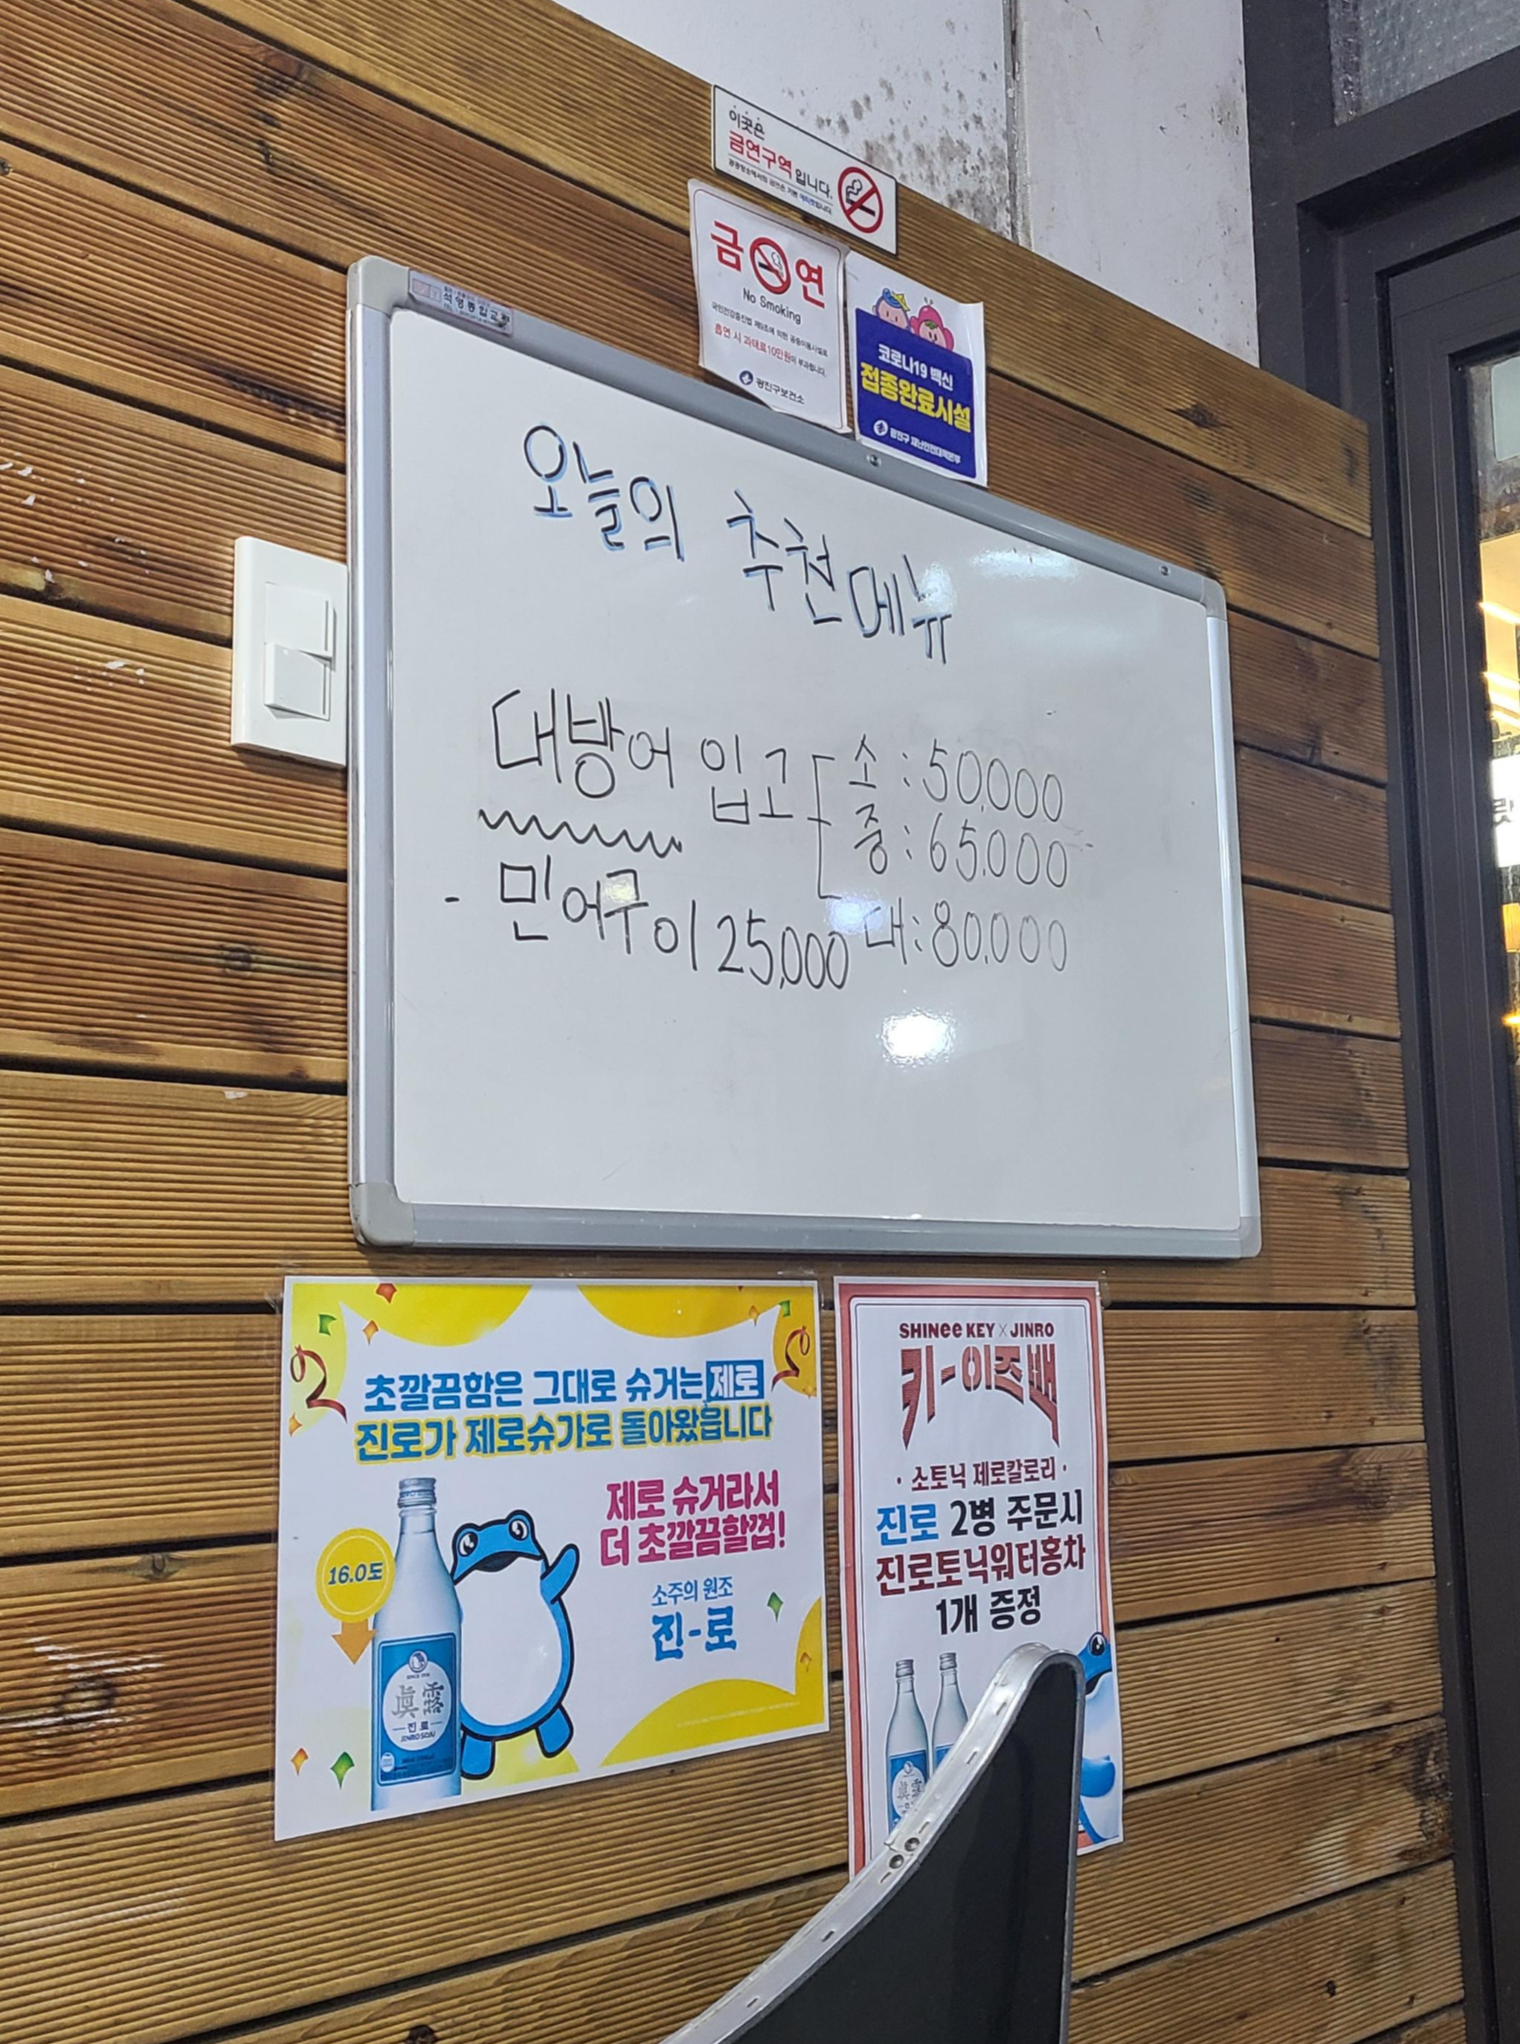 이곳은
금연구역 입니다.
금 연
No Smoking
국민건강증진법 제9조에 의한 공중이용시설로
흡연 시 과태료10만원이 부과됩니다.
광진구보건소
코로나19 백신
접종완료시설
광진구 재난안전대책본부
오늘의 추천메뉴
대방어 입고 소 : 50,000
중 : 65,000
대 : 80,000
- 민어구이 25,000
초깔끔함은 그대로 슈거는 제로
진로가 제로슈가로 돌아왔읍니다
제로 슈거라서
더 초깔끔할껍!
16.0도
소주의 원조
진-로
眞露
진로
JINRO SOJU
SHINee KEY X JINRO
키-이즈백
· 소토닉 제로칼로리 ·
진로 2병 주문시
진로토닉워터홍차
1개 증정
眞露